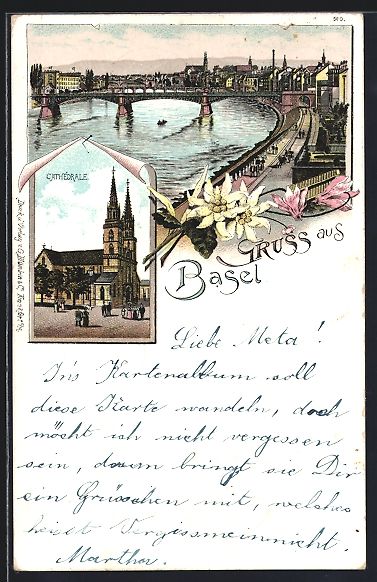 CATHÉDRALE.
GRUSS aus
Basel
Liebe Meta!
In's Kartenalbum soll
diese Karte wandeln, doch
möcht ich nicht vergessen
sein, darum bringt sie Dir
ein Grüsschen mit, welches
heisst Vergissmeinnicht.
Martha.